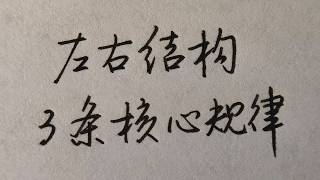 左右结构
3条核心规律